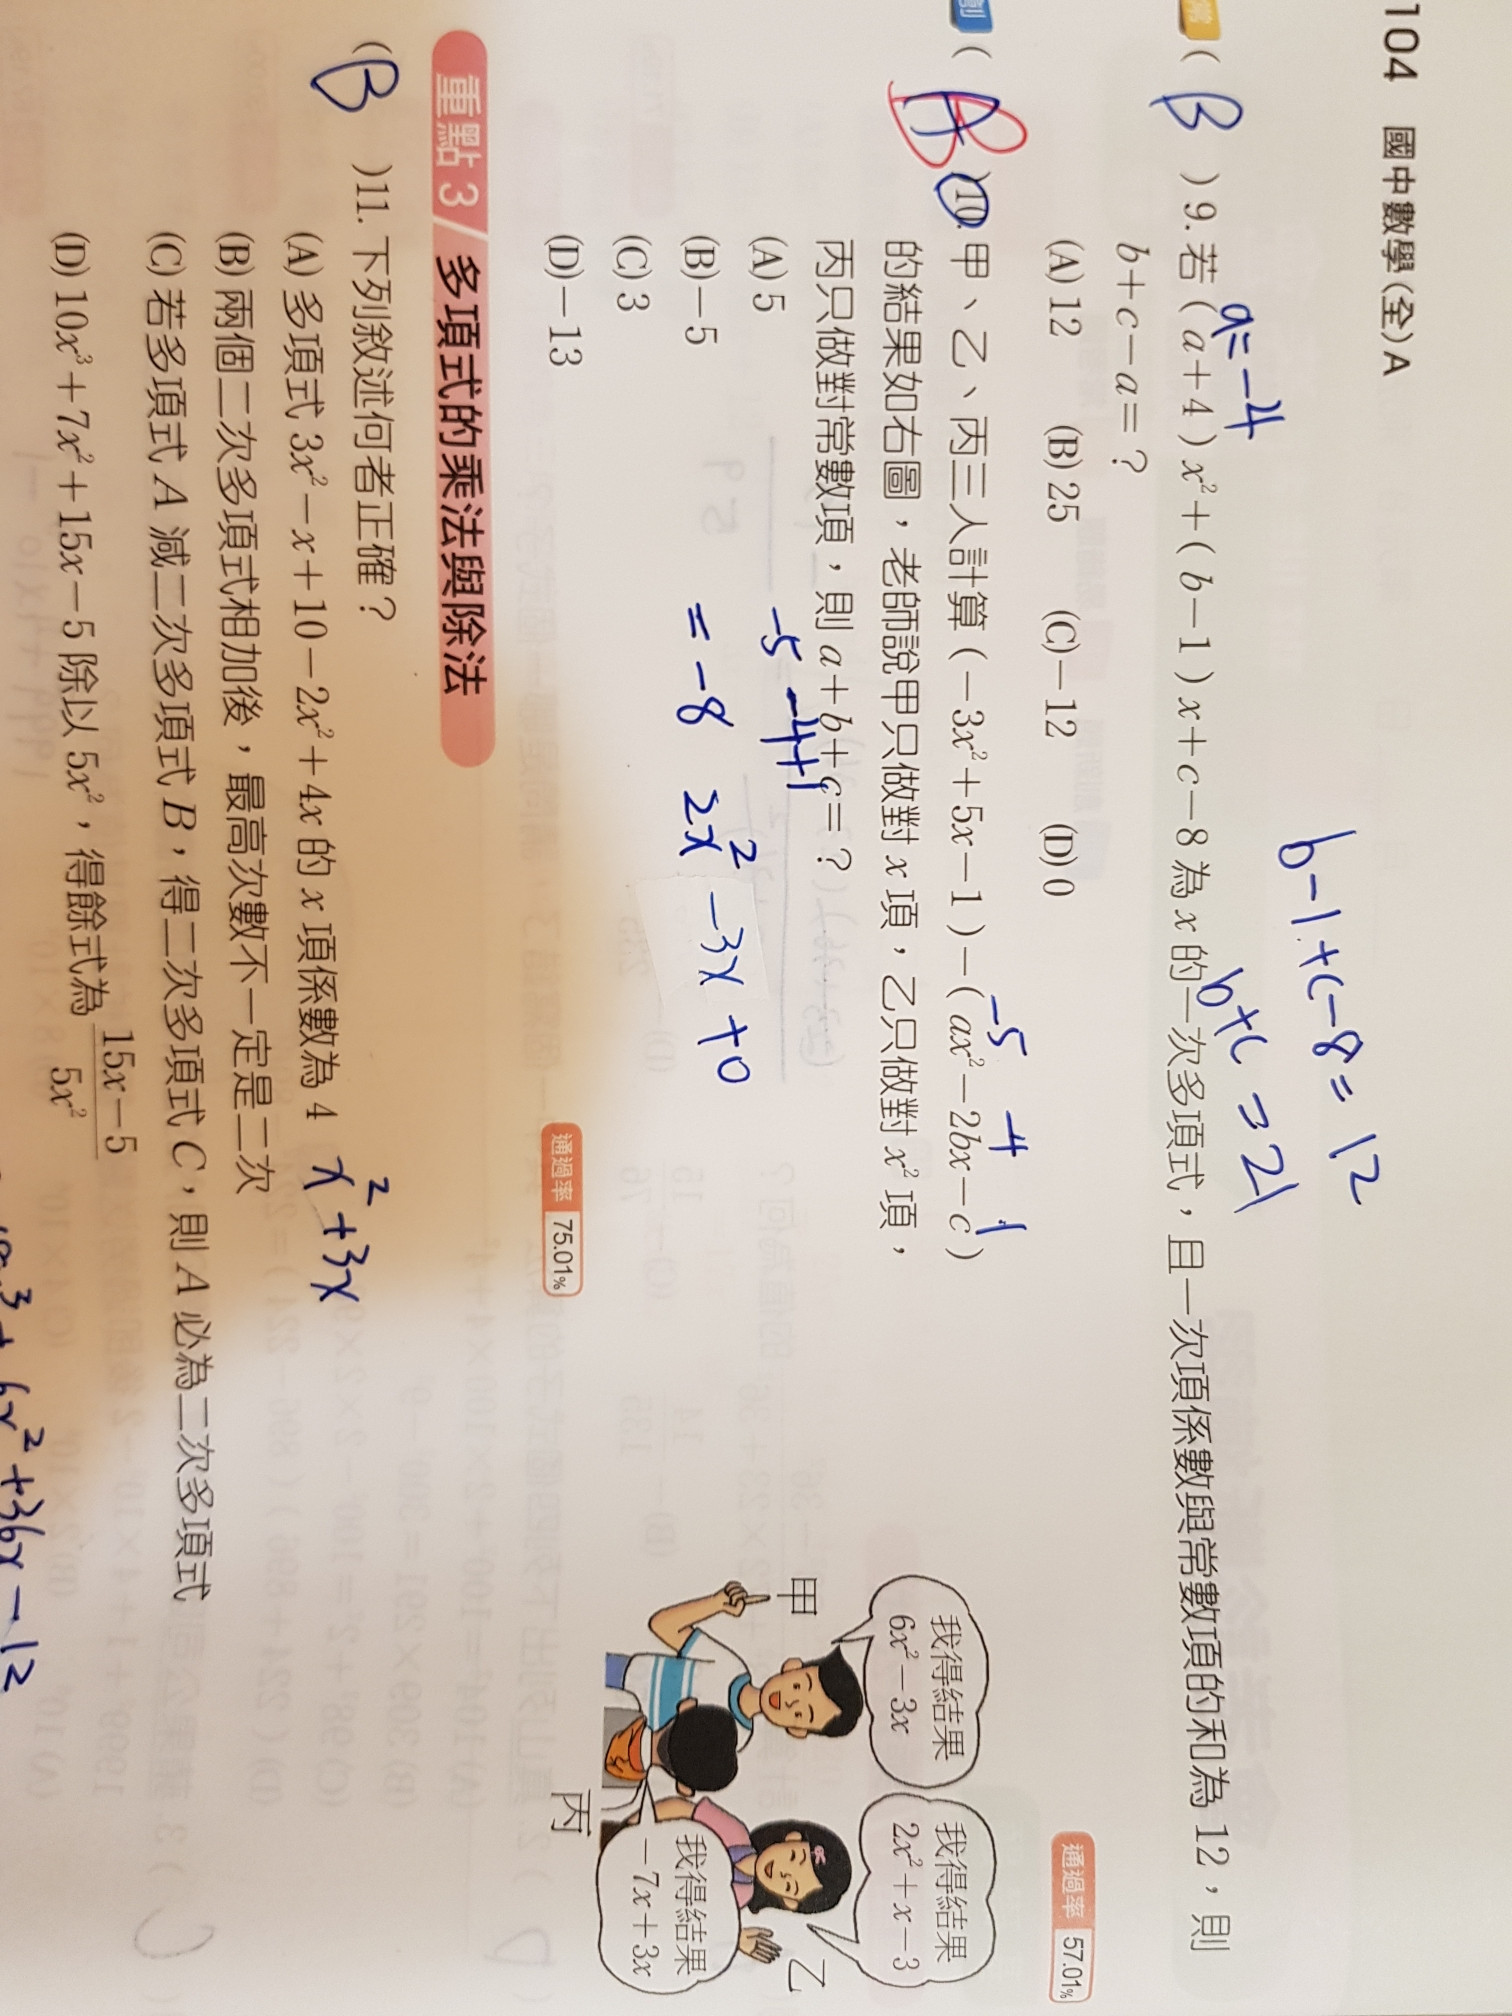 104 國中數學(全)A
b-1+c-8=12
a=-4
b+c=21
( B ) 9. 若 (a+4)x²+(b-1)x+c-8 為 x 的一次多項式，且一次項係數與常數項的和為 12，則
b+c-a=？
(A) 12 (B) 25 (C)-12 (D) 0
通過率 57.01%
-5 4 1
( B ) 10. 甲、乙、丙三人計算 (-3x²+5x-1)-(ax²-2bx-c)
的結果如右圖，老師說甲只做對 x 項，乙只做對 x² 項，
丙只做對常數項，則 a+b+c=？
(A) 5
(B)-5
(C) 3
(D)-13
-5-4+1
=-8
2x²-3x+0
通過率 75.01%
我得結果
6x²-3x
甲
我得結果
2x²+x-3
乙
我得結果
-7x+3x
丙
重點 3 多項式的乘法與除法
( B ) 11. 下列敘述何者正確？
(A) 多項式 3x²-x+10-2x²+4x 的 x 項係數為 4
x²+3x
(B) 兩個二次多項式相加後，最高次數不一定是二次
(C) 若多項式 A 減二次多項式 B，得二次多項式 C，則 A 必為二次多項式
(D) 10x³+7x²+15x-5 除以 5x²，得餘式為 15x-5/5x²
+36x-12